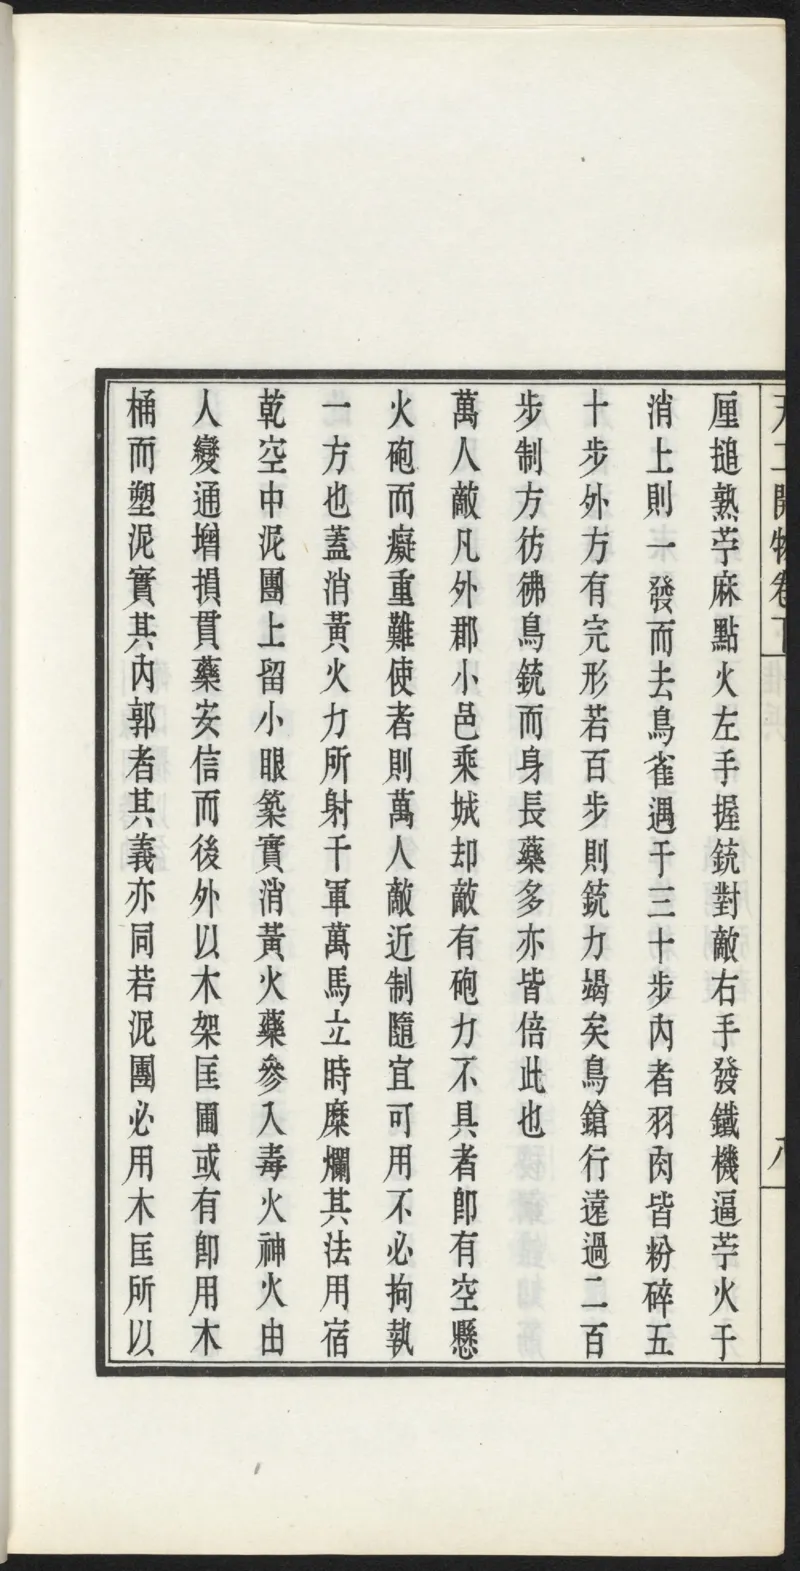 天工開物卷下
八
厘搥熟苧麻點火左手握銃對敵右手發鐵機逼苧火于
消上則一發而去鳥雀遇于三十步內者羽肉皆粉碎五
十步外方有完形若百步則銃力竭矣鳥鎗行遠過二百
步制方彷彿鳥銃而身長藥多亦皆倍此也
萬人敵凡外郡小邑乘城却敵有砲力不具者卽有空懸
火砲而癡重難使者則萬人敵近制隨宜可用不必拘執
一方也蓋消黃火力所射千軍萬馬立時糜爛其法用宿
乾空中泥團上留小眼築實消黃火藥參入毒火神火由
人變通增損貫藥安信而後外以木架匡圍或有卽用木
桶而塑泥實其內郭者其義亦同若泥團必用木匡所以